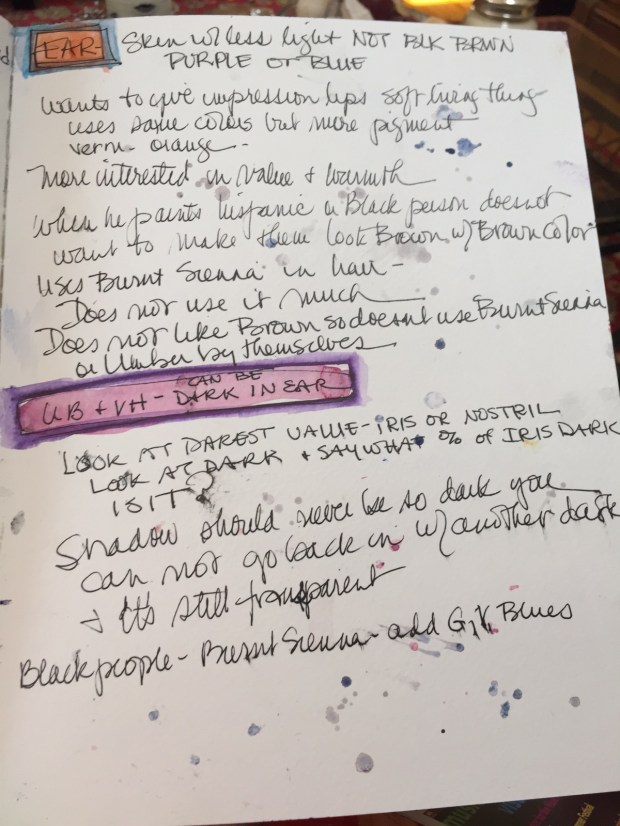 EAR- Skin w/ less light NOT BLK BRWN
PURPLE or BLUE
wants to give impression lips soft living thing-
uses same colors but more pigment
verm- orange-
more interested in value + warmth
When he paints hispanic or Black person doesnt
want to make them look Brown w/ Brown color
Uses Burnt Sienna in hair-
Does not use it much
Does not like Brown so doesnt use Burnt Sienna
or Umber by themselves
CAN BE
UB + VH- DARK IN EAR
LOOK AT DAREST VALUE- IRIS OR NOSTRIL
LOOK AT DARK + SAY WHAT % of IRIS DARK
IS IT?
Shadow should never be so dark you
can not go back in w/ another dark
+ It's still transparent
Black people - Burnt Sienna- add G, V, Blues